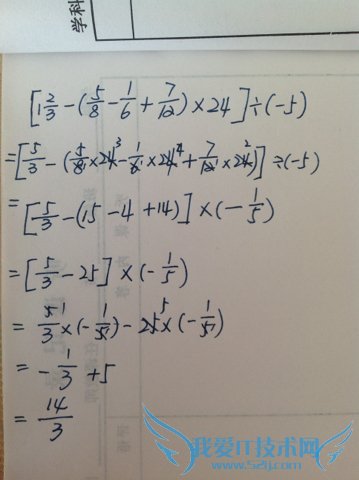 学科
[1 2/3 - (5/8 - 1/6 + 7/12) × 24] ÷ (-5)
= [5/3 - (5/8 × 24³ - 1/6 × 24⁴ + 7/12 × 24²)] ÷ (-5)
= [5/3 - (15 - 4 + 14)] × (- 1/5)
= [5/3 - 25] × (- 1/5)
= 5¹/3 × (- 1/5) - 25⁵ × (- 1/5)
= - 1/3 + 5
= 14/3
我爱IT技术网
www.52ij.com